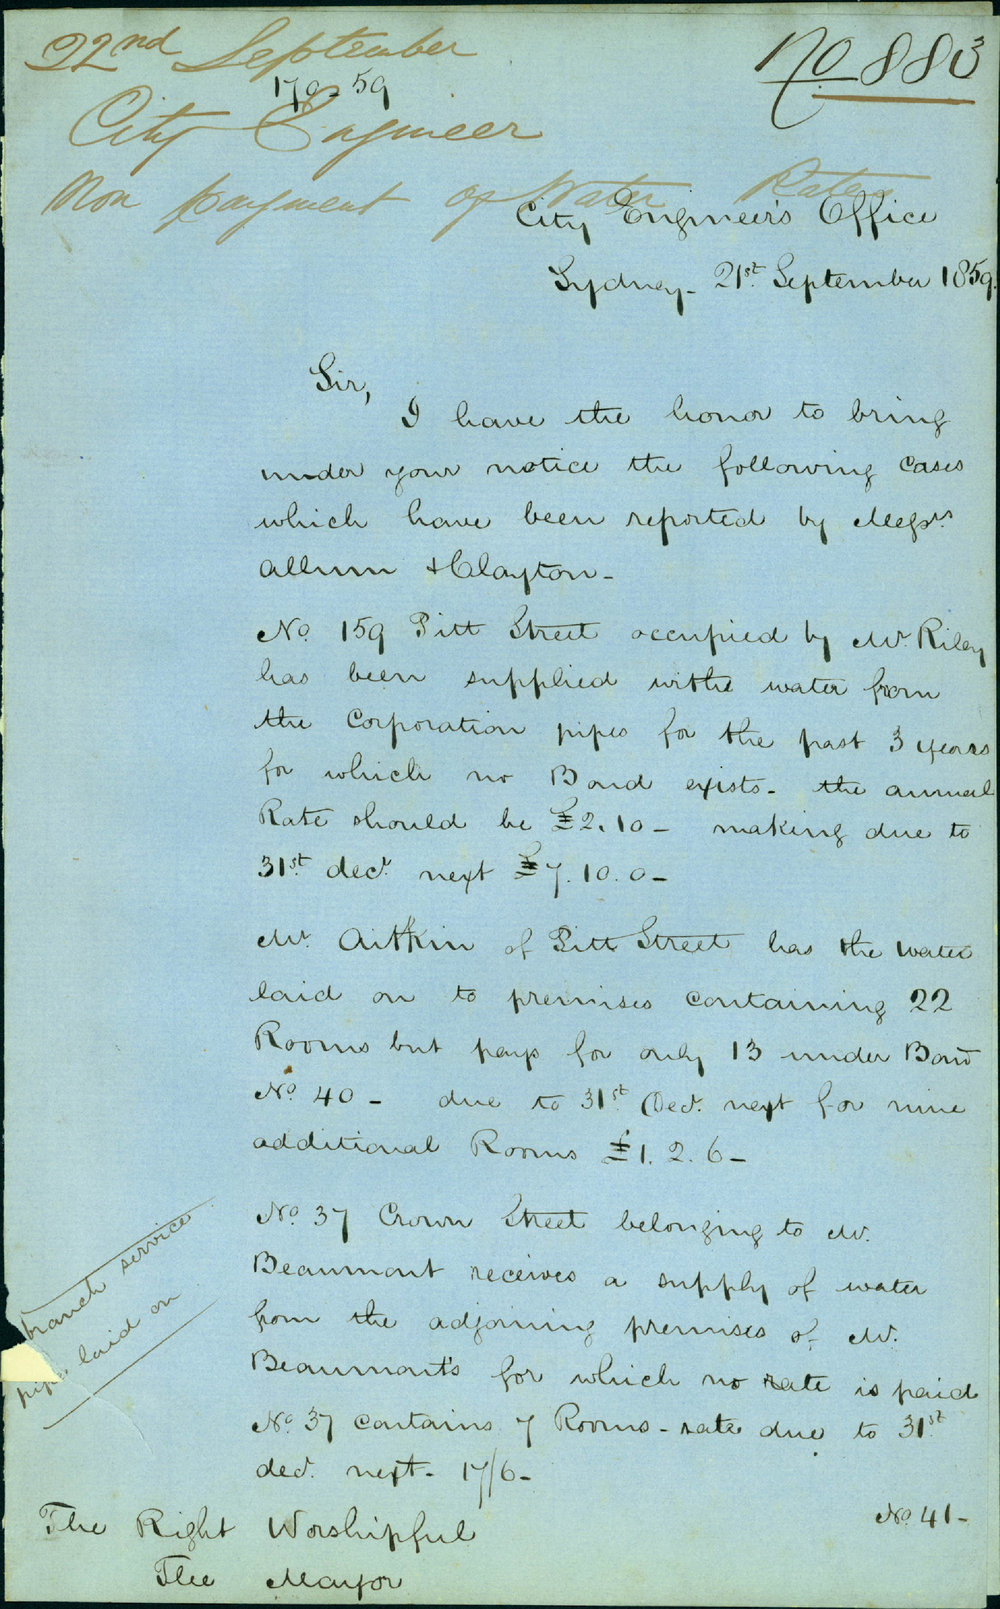 22nd September
No 883
179-59
City Engineer
Non payment of Water Rates
City Engineer's Office
Sydney - 21st September 1859.
Sir,
I have the honor to bring
under your notice the following cases
which have been reported by Messrs
Allum & Clayton -
No. 159 Pitt Street occupied by Mr. Riley
has been supplied withe water from
the Corporation pipes for the past 3 years
for which no Bond exists - the annual
Rate should be £2.10 - making due to
31st decr. next £7.10.0 -
Mr. Aitkin of Pitt Street has the water
laid on to premises containing 22
Rooms but pays for only 13 under Bond
No. 40 - due to 31st Decr. next for nine
additional Rooms £1.2.6 -
No. 37 Crown Street belonging to Mr.
Beaumont receives a supply of water
from the adjoining premises of Mr.
Beaumont's for which no rate is paid
No. 37 contains 7 Rooms - rate due to 31st
decr. next - 17/6 -
branch service
pipe laid on
No. 41 -
The Right Worshipful
The Mayor